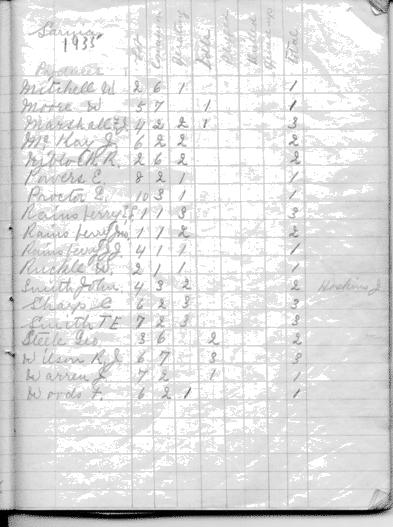 1935
Producer Lot Con Total
Mitchell W 2 6 1 1
Moore W 5 7 1 1
Marshall 4 2 2 1 3
McKay J 6 2 2 2
R. 2 6 2 2
Powers E. 8 2 1 1
Proctor E. 10 3 1 1
Rainsferry 1 1 3 3
Rainsferry 1 1 2 2
Rainsferry J 4 1 1 1
Ruckle W. 2 1 1 1
Smith John 4 3 2 2 Hoskins J
Sharp C 6 2 3 3
Smith T E 7 2 3 3
Steele Geo 3 6 2 2
Wilson R. J 6 7 3 3
Warren J 7 2 1 1
Woods F. 6 2 1 1